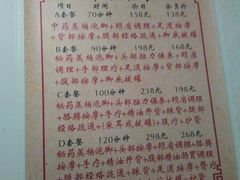 项目 时间 价 会员价
A套餐 70分钟 158元 138元
中药蒸桶泡脚+颈肩调理+足道按摩
+背部按摩+腹部经络疏通+脚底拔罐
B套餐 90分钟 198元 168元
秘药蒸桶泡脚+头部 保养+颈肩
调理+手部理疗+足道按摩+背部
按摩+腹部按摩+脚底拔罐
C套餐 100分钟 238元 198元
秘药蒸桶泡脚+头部按摩+颈肩
按摩+手疗+精油开背+足疗+腿部
经络疏通+(采耳或拔罐)+腹疗+护肾
D套餐 120分钟 298元 268元
秘药蒸桶泡脚+头部按摩+
按摩+手疗+精油开背+腹部精油